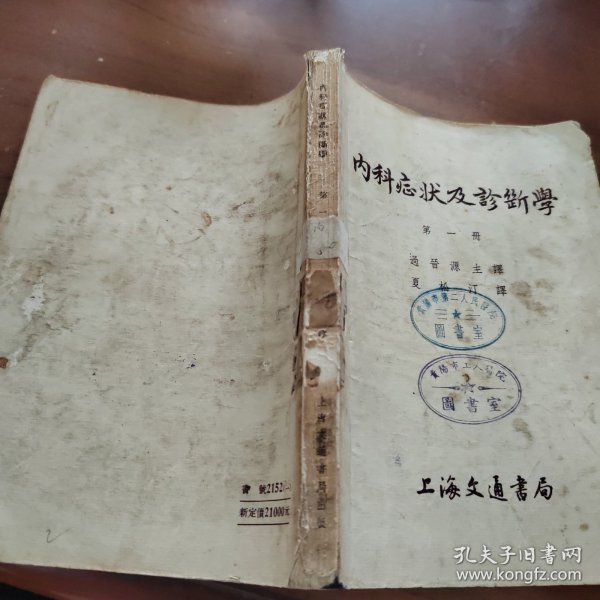 内科症狀及診断學
第一冊
過晉源主譯
夏松汀譯
貴陽市第二人民醫院
圖書室
貴陽市工人醫院
圖書室
上海文通書局
内科症狀及診斷學
第
上海文通書局出版
書號2152(一)
新定價21000元
孔夫子旧书网
www.kongfz.com